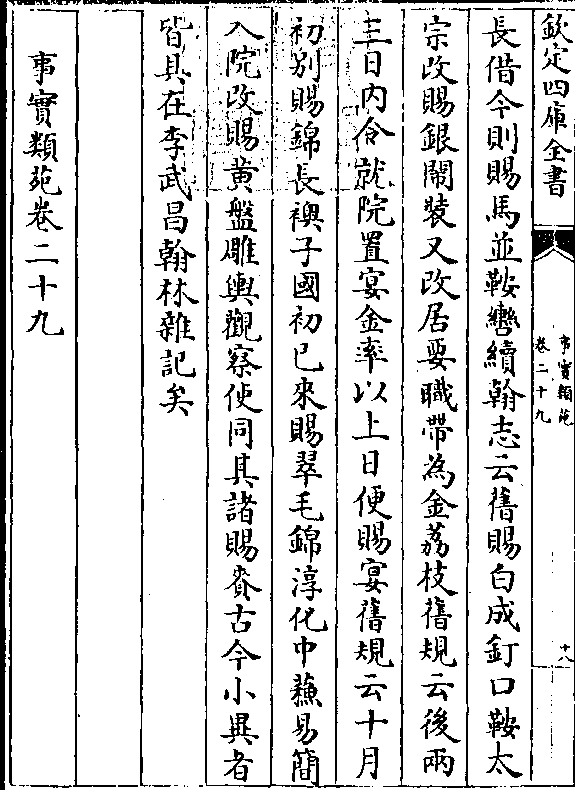 欽定四庫全書
事實類苑
卷二十九
十八
長借今則賜馬並鞍轡續翰志云舊賜白成釘口鞍太
宗改賜銀鬧裝又改居要職帶為金荔枝舊規云後兩
三日内令就院置宴金率以上日便賜宴舊規云十月
初别賜錦長襖子國初已來賜翠毛錦淳化中蘇易簡
入院改賜黄盤雕與觀察使同其諸賜賚古今小異者
皆具在李武昌翰林雜記矣
事實類苑卷二十九